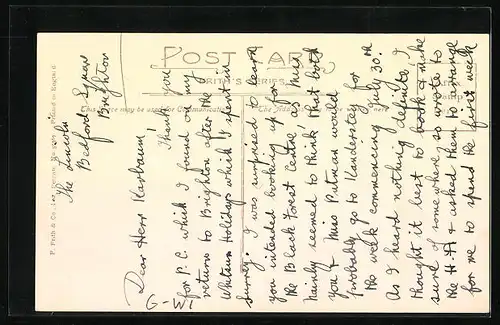 The Lincoln
Bedford Square
Brighton
Dear Herr Karbaum!
Thank you
for P.C. which I found on my
return to Brighton after the
Whitsun Holidays which I spent in
Surrey. I was surprised to learn
you intended booking up for
the Black Forest Centre as Miss
Hainly seemed to think that both
you & Miss Putnam would
probably go to Kandersteg for
the week commencing July 30th
As I heard nothing definite I
thought it best to book & make
sure of somewhere so wrote to
the H.F. & asked them to arrange
for me to spend the first week
G-W1
POST CARD
FRITH'S SERIES
This Space may be used for Communication
The Address
F. Frith & Co. Ltd. Reigate
Printed in England